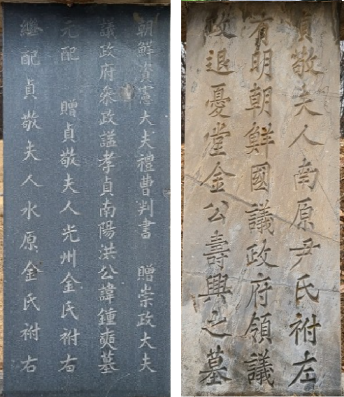 朝鮮資憲大夫禮曹判書 贈崇政大夫
議政府叅政諡孝貞南陽洪公諱鍾奭墓
元配 贈貞敬夫人光州金氏祔右
繼配貞敬夫人水原金氏祔右
貞敬夫人南原尹氏祔左
有明朝鮮國議政府領議
政退憂堂金公壽興之墓